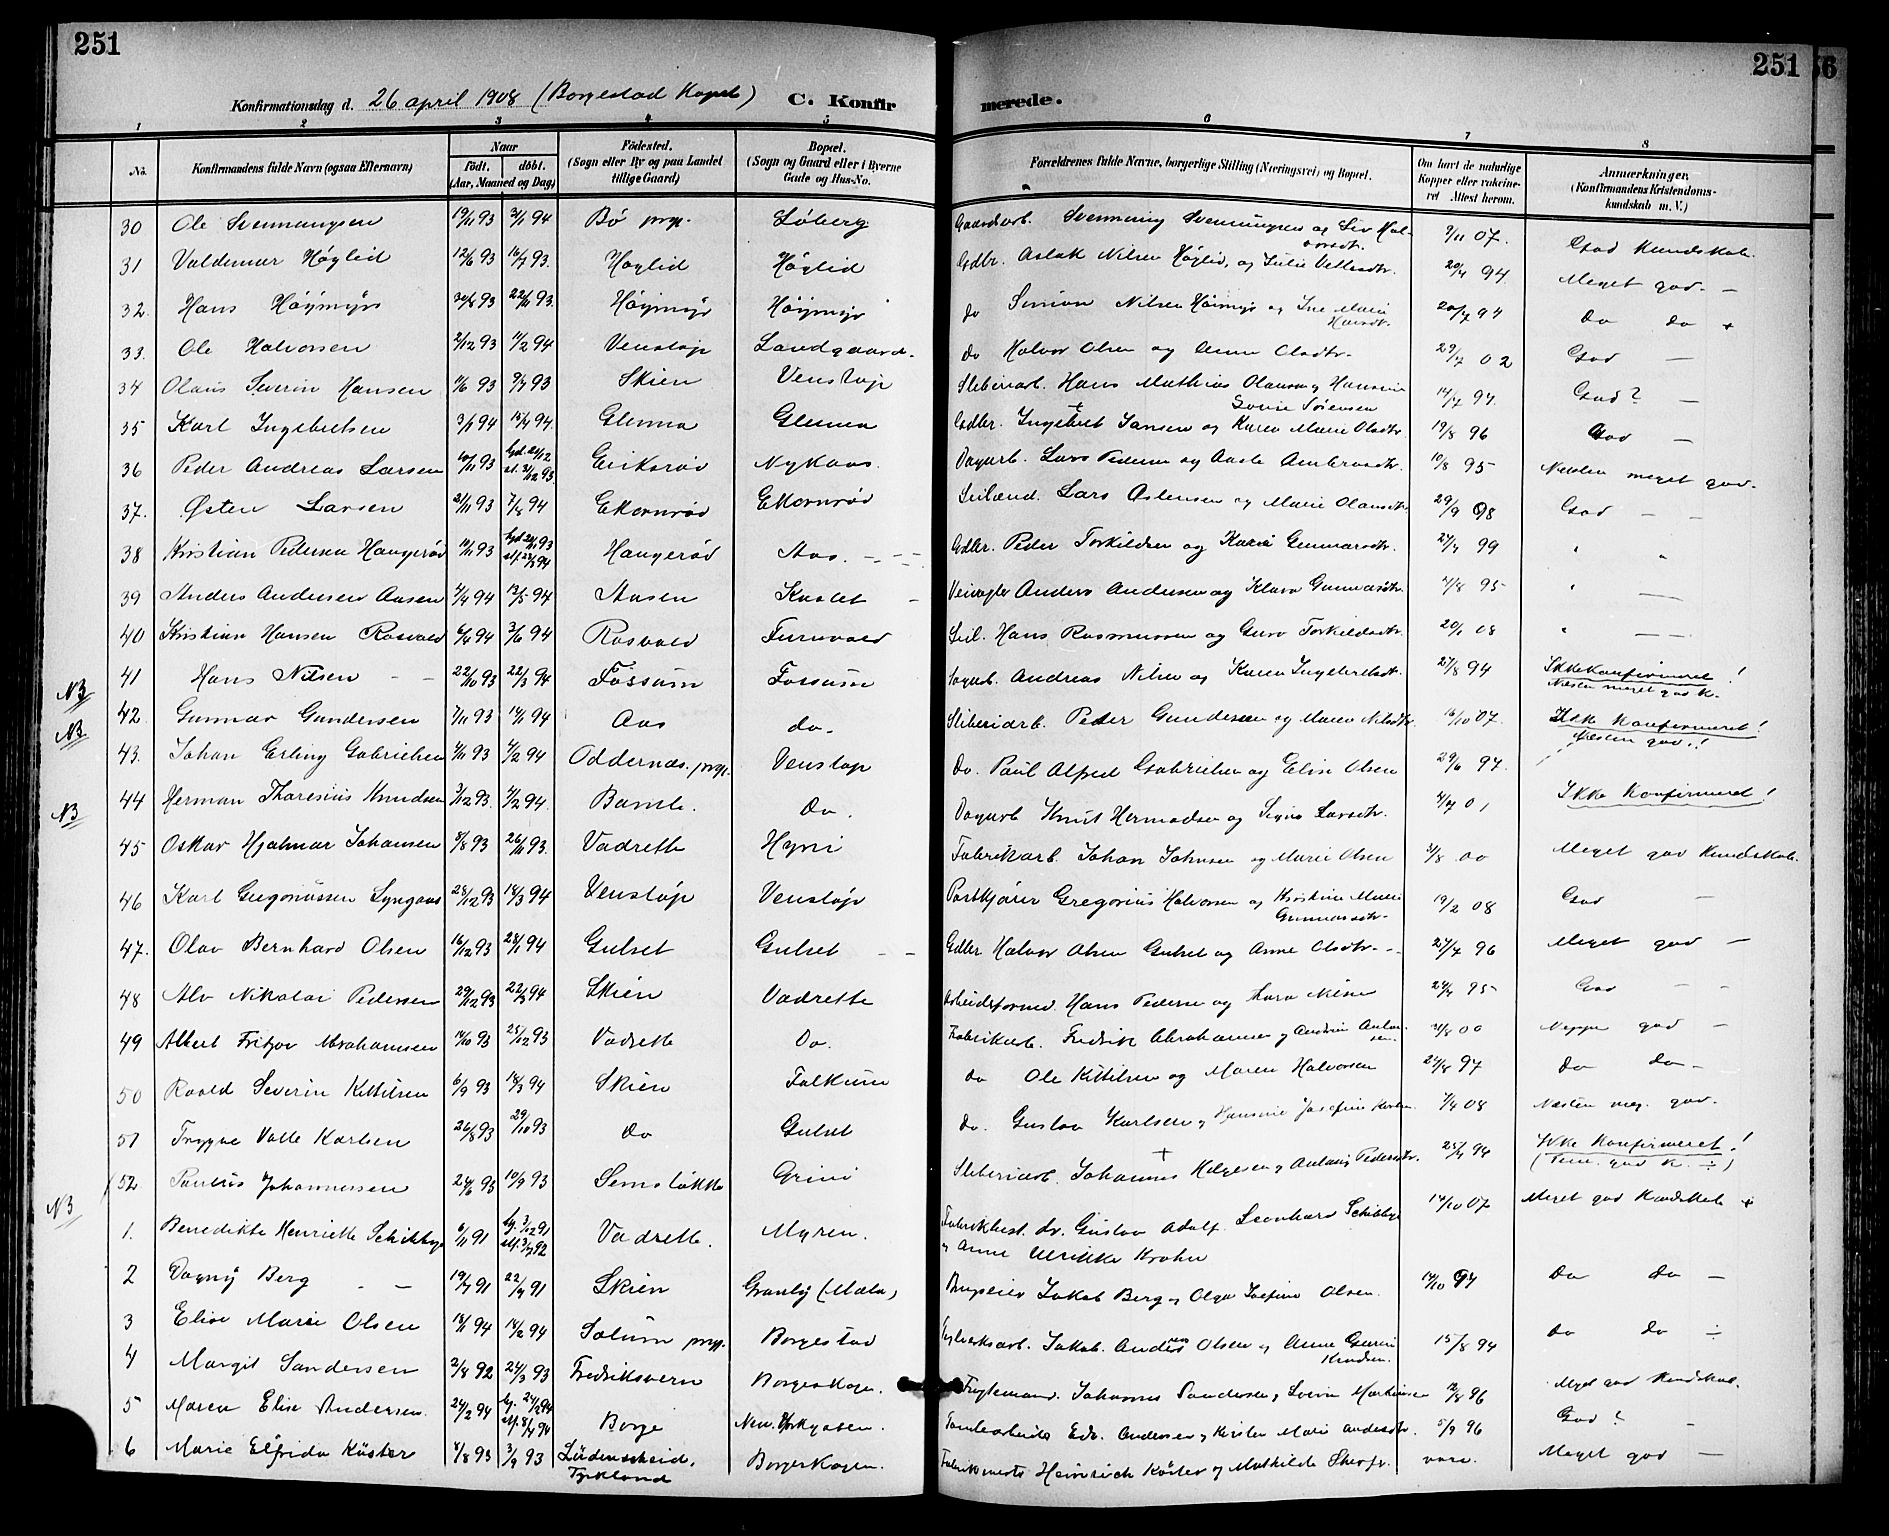 251
251
56
Konfirmationsdag d. 26 april 1908 (Borgestad Kapel) C. Konfirmerede.
1 2 3 4 5 6 7 8
No. Konfirmandens fulde Navn (ogsaa Efternavn) Naar født, døbt. (Aar, Maaned og Dag) Fødested. (Sogn eller By og paa Landet tillige Gaard) Bopæl. (Sogn og Gaard eller i Byerne Gade og Hus-No. Forældrenes fulde Navne, borgerlige Stilling (Næringsvei) og Bopæl. Om havt de naturlige Kopper eller vakcineret Attest herom. Anmærkninger, (Konfirmandens Kristendomskundskab m. V.)
30 Ole Svenningsen 19/11 93 2/1 94 Bø prgj. Løberg Gaardsarb. Svenning Svenningsen og Liv Halvorsdtr. 9/11 07. God Kundskab.
31 Valdemar Høglid 12/6 93 16/7 93. Høglid Høglid Gdbr. Aslak Nilsen Høglid, og Julie Vetlesdtr. 20/4 94 Meget god. —
32. Hans Høymyr 22/11 93. Høymyr Høymyr do Simon Nilsen Høimyr og Ine Marie Hansdtr. 20/4 94 Do do
33. Ole Halvorsen 2/12 93 11/2 94 Venstøp Landgaard. do Halvor Olsen og Anne Olsdtr. 29/7 02 God —
34 Olaus Severin Hansen 11/6 93 9/7 93 Skien Venstøp Sliberiarb. Hans Mathias Olausen og Hansine Sørensen 14/7 94. God? —
35 Karl Ingebretsen 3/1 94 15/4 94. Glenna Glenna Gdbr. Ingebret Jansen og Karen Marie Olsdtr. 19/8 96 God —
36 Peder Andreas Larsen 10/11 93 Eriksrød Nykaas. Dagarb. Lars Pedersen og Aaste Ambrosdtr. 10/8 95 Næsten meget god.
37. Østen Larsen 21/11 93 7/8 94 Ekornrød Ekornrød Selveiend. Lars Østensen og Marie Olausdtr. 29/9 98 God — —
38 Kristian Pedersen Haugerød 10/11 93 Haugerød Aas. — Gdbr. Peder Torkildsen og Karen Gunnarsdtr. 27/7 99 " "
39 Anders Andersen Aasen 4/4 94 13/5 94 Aasen Kastet — Veivogter Anders Andersen og Klara Gunnarsdtr. 4/8 95 " —
40 Kristian Hansen Rosvald 6/4 94 3/6 94 Rosvald Furuvald Hans Rasmussen og Guro Torkildsdtr. 20/1 08 " —
NB 41 Hans Nilsen — — 22/10 93 22/3 94 Fossum Fossum Dagarb. Andreas Nilsen og Karen Ingebretsdtr. 27/8 94 Ikke konfirmeret! Næsten meget god K.
NB 42. Gunnar Gundersen 7/11 93 14/1 94 Aas do. Sliberiarb. Peder Gundersen og Maren Nilsdtr. 16/10 07. Ikke konfirmeret! Næsten god.!
43. Johan Erling Gabrielsen 4/11 93 4/2 94 Oddernæs prgj. Venstøp Do. Paul Alfred Gabrielsen og Elise Olsen 29/6 97.
NB 44 Herman Tharesius Knudsen 3/12 93. 4/2 94. Bamle. Do. Dagarb Knut Hermodsen og Signe Larsdtr. 4/7 01 Ikke konfirmeret!
45 Oskar Hjalmar Johansen 8/8 93 26/11 93. Vadrette Hyni Fabrikarb. Johan Johnsen og Marie Olsen 3/8 00 Meget god Kundskab.
46 Karl Gregoriussen Lyngaas 28/12 93 18/3 94 Venstøp Venstøp Postkjører Gregorius Halvorsen og Kristine Marie Gunnarsdtr. 19/2 08 God —
47. Olav Bernhard Olsen 16/12 93 28/1 94 Gulset Gulset — — Gdbr Halvor Olsen Gulset og Anne Olsdtr. — 27/4 96 Meget god —
48 Alv Nikolai Pedersen 29/12 93 22/3 94 Skien Vadrette Arbeidsformd. Hans Pedersen og Thora Nilsen 24/4 95 God — —
49 Albert Fritjov Abrahamsen 14/10 93 25/12 93 Vadrette Do. Fabrikarb. Fredrik Abrahamsen og Andrine Antonsen. 21/8 00 Neppe god —
50 Roald Severin Kittilsen 6/9 93 18/3 94 Skien Falkum do Ole Kittilsen og Maren Halvorsen 24/8 97 Do Do —
51 Trygve Valle Karlsen 26/8 93 29/10 93 Do Gulset do. Gustav Karlsen og Hansine Josefine Karlsen 7/4 08 Næsten meg. god.
NB 52. Paulus Johannessen 24/6 93 10/9 93 Semsløkka Grini Sliberiarb. Johannes Helgesen og Antane Pedersdtr. 25/4 94 Ikke konfirmeret!
1. Benedikte Henriette Schibbye 6/11 91 Vadrette. Myren. Fabrikbest. dr. Gustav Adolf Leonhard Schibbye og Anne Ulrikke Krohn 14/10 07 Meget god Kundskab
2 Dagny Berg — — 19/4 91 22/4 91 Skien Granly (Mæla) Jakob Berg og Olga Josefine Olsen. 14/10 94 Do Do —
3 Elise Marie Olsen 18/1 94 18/2 94 Solum prgj. Borgestad Jakob Andersen Olsen og Anne Gurine Knudsen. 15/8 94 do do —
4 Margit Sandersen 2/8 92 24/3 93 Fredriksvern Borgeskogen. Johannes Sandersen og Lovise Martinsen 12/8 96 Meget god Kundskab.
5 Maren Elise Andersen 24/2 94 Borge Edv. Andersen og Kirsten Marie Andersdtr. 5/9 96 God? —
6 Marie Elfrida Küster 8/8 93 3/9 93 Lüdenscheid, Tyskland Borgeskogen. Heinrich Küster og Mathilde vacc. Meget god —